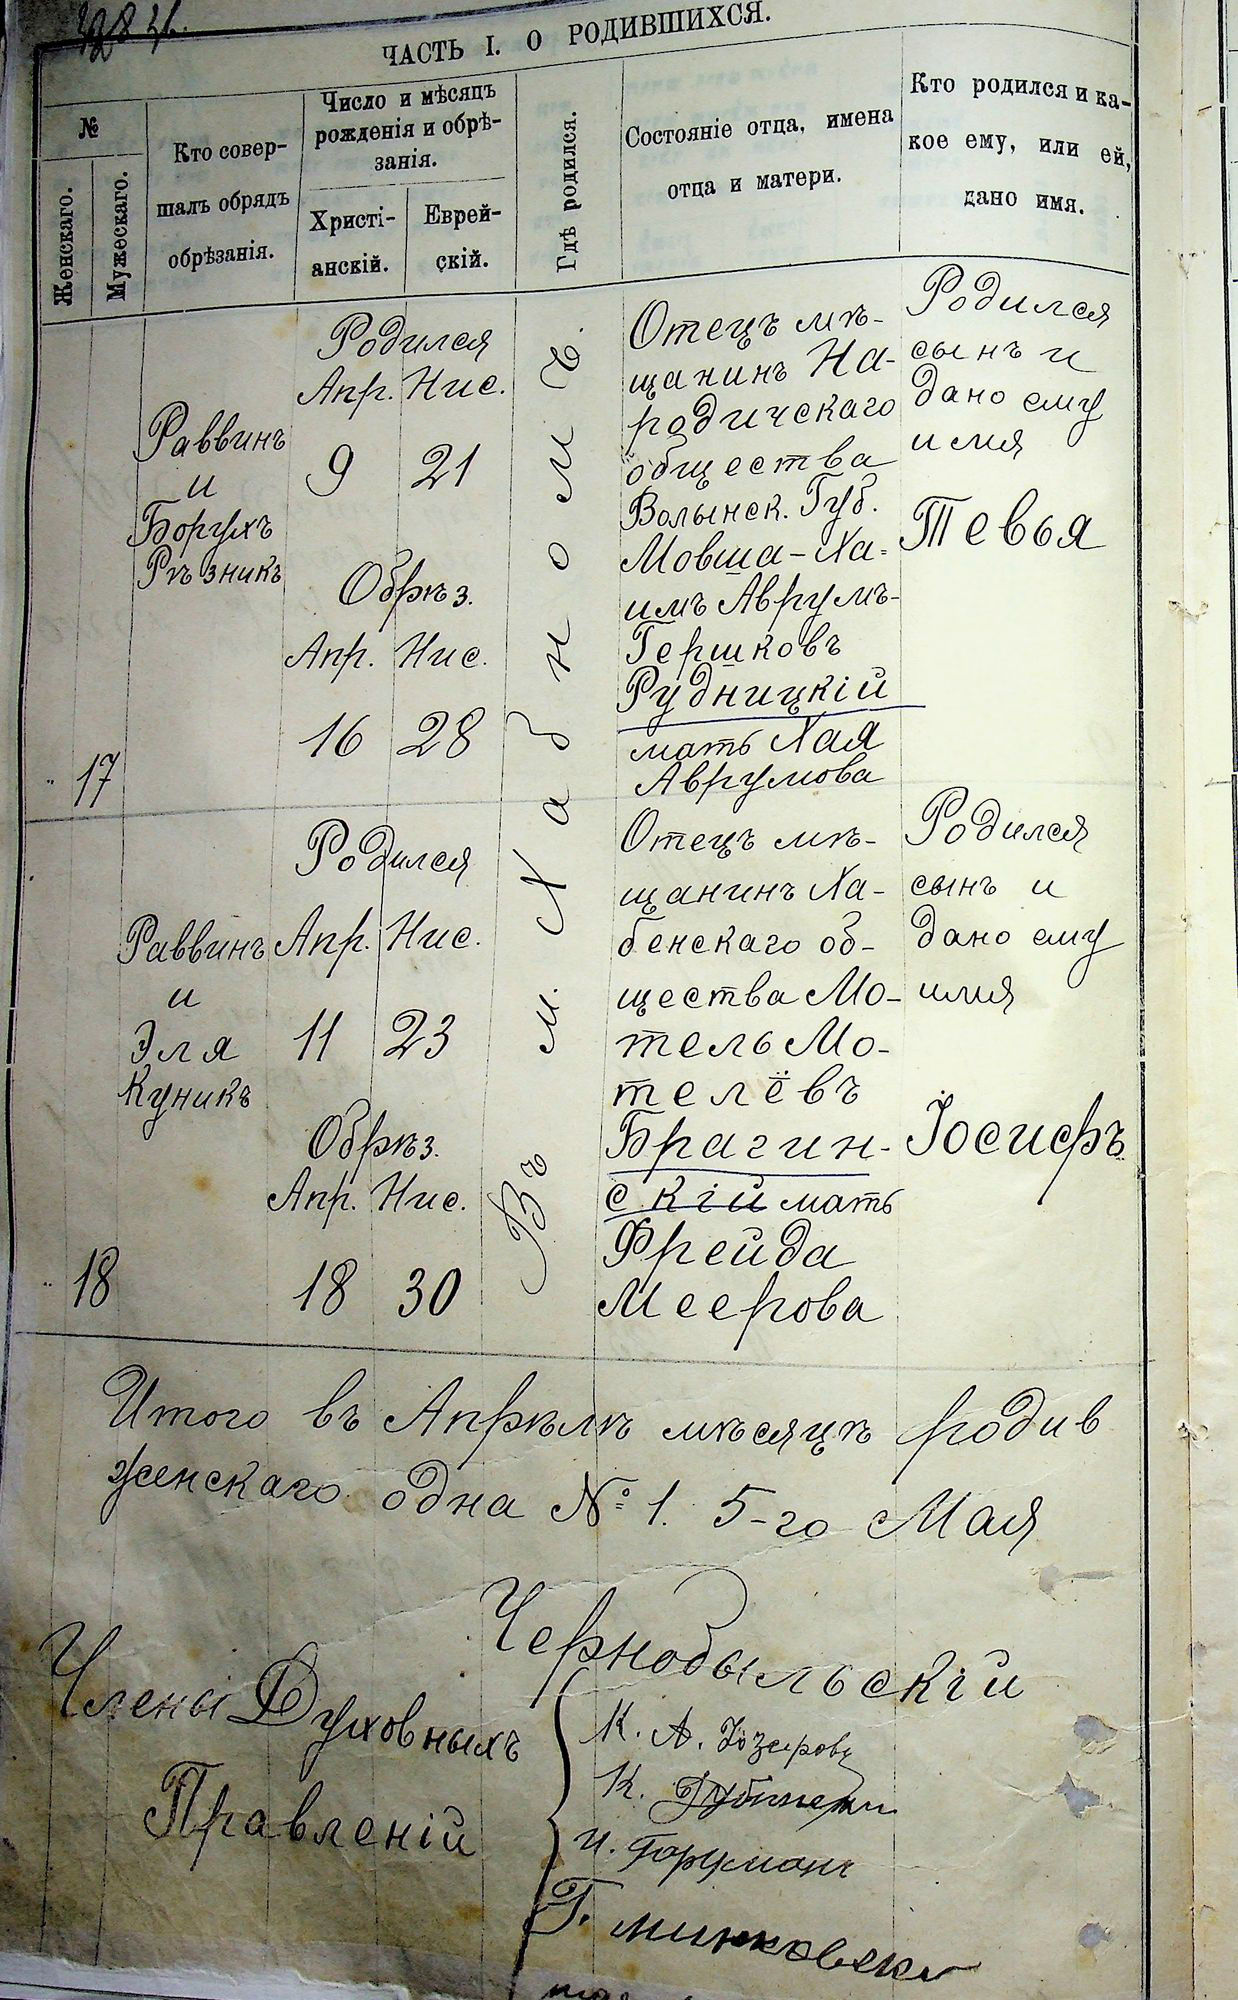 ЧАСТЬ I. О РОДИВШИХСЯ.
№
Женскаго.
Мужескаго.
Кто совер-
шалъ обрядъ
обрѣзанія.
Число и мѣсяцъ
рожденія и обрѣ-
занія.
Христі-
анскій.
Еврей-
скій.
Гдѣ родился.
Состояніе отца, имена
отца и матери.
Кто родился и ка-
кое ему, или ей,
дано имя.
17
Раввинъ
и
Борухъ
Рѣзникъ
Родился
Апр. Нис.
9 21
Обрѣз.
Апр. Нис.
16 28
Въ м. Хабномъ.
Отецъ мѣ-
щанинъ На-
родичскаго
общества
Волынск. Губ.
Мовша-Ха-
имъ Аврумъ-
Гершковъ
Рудницкій
мать Хая
Аврумова
Родился
сынъ и
дано ему
имя
Тевья
18
Раввинъ
и
Эля
Куникъ
Родился
Апр. Нис.
11 23
Обрѣз.
Апр. Нис.
18 30
Отецъ мѣ-
щанинъ Ха-
бенскаго об-
щества Мо-
тель Мо-
телёвъ
Брагин-
скій мать
Фрейда
Меерова
Родился
сынъ и
дано ему
имя
Іосифъ
Итого въ Апрѣлѣ мѣсяцѣ родив
женскаго одна № 1. 5-го Мая
Чернобыльскій
Члены Духовныхъ
Правленій
К. А.
К.
И.
Г. Минковски